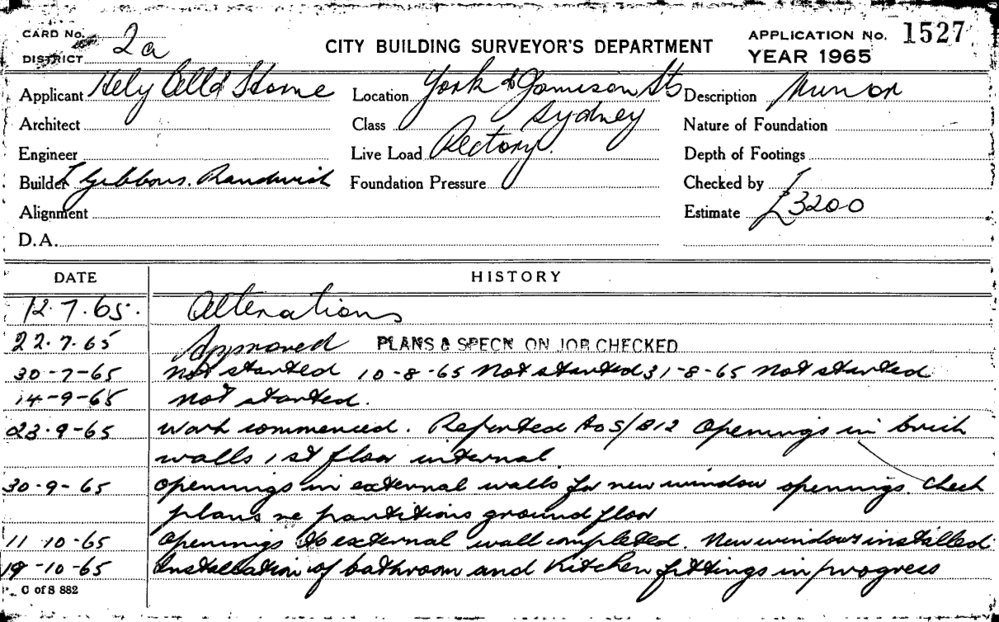 CARD No. 2a CITY BUILDING SURVEYOR'S DEPARTMENT APPLICATION No. 1527
DISTRICT YEAR 1965
Applicant Hely Bell & Horne Location York & Jamison Sts Description Minor
Architect Class Sydney Nature of Foundation
Engineer Live Load Rectory. Depth of Footings
Builder Gibbons. Randwick Foundation Pressure Checked by
Alignment Estimate £3200
D.A.
DATE HISTORY
12.7.65. Alterations
22.7.65 Approved PLANS & SPECN ON JOB CHECKED
30-7-65 Not started 10-8-65 Not started 31-8-65 Not started
14-9-65 Not started.
23.9-65 Work commenced. Reported to S/B12 Openings in brick
walls 1st floor internal
30-9-65 Openings in external walls for new window openings. Check
plans re partitions ground floor
11 10-65 Openings to external wall completed. New windows installed
19-10-65 Installation of bathroom and kitchen fittings in progress
C of S 882